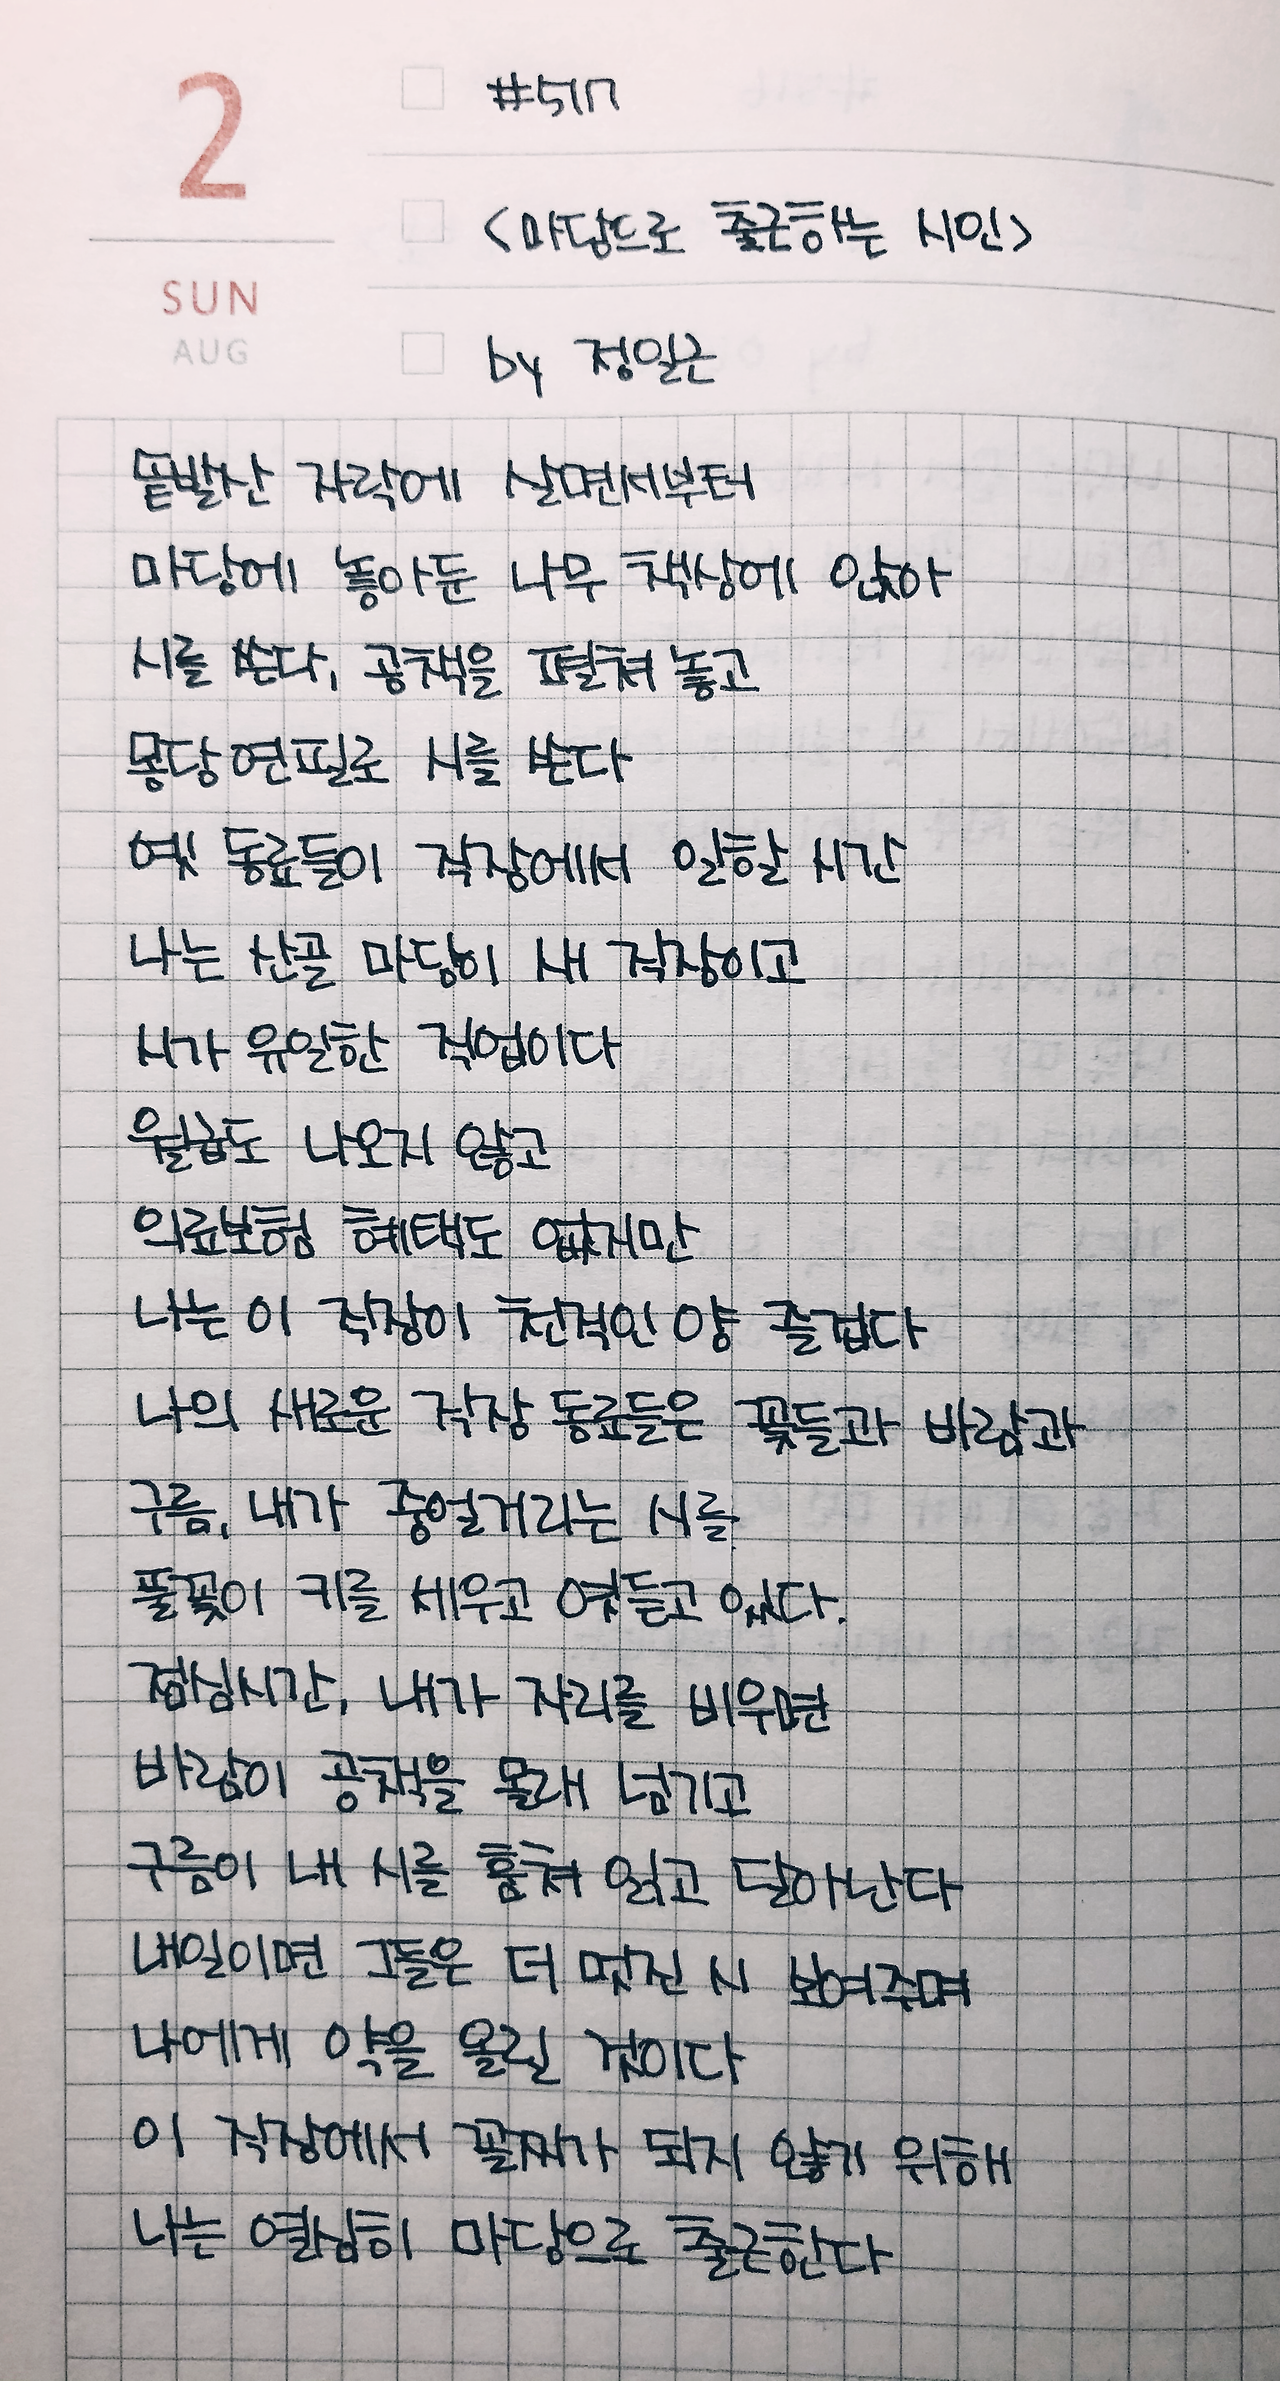 2
SUN
AUG
#517
<마당으로 출근하는 시인>
by 정일근
솥발산 자락에 살면서부터
마당에 놓아둔 나무 책상에 앉아
시를 쓴다, 공책을 펼쳐 놓고
몽당연필로 시를 쓴다
옛 동료들이 직장에서 일할 시간
나는 산골 마당이 새 직장이고
시가 유일한 직업이다
월급도 나오지 않고
의료보험 혜택도 없지만
나는 이 직장이 천직인 양 즐겁다
나의 새로운 직장 동료들은 꽃들과 바람과
구름, 내가 중얼거리는 시를
풀꽃이 키를 세우고 엿듣고 있다.
점심시간, 내가 자리를 비우면
바람이 공책을 몰래 넘기고
구름이 내 시를 훔쳐 읽고 달아난다
내일이면 그들은 더 멋진 시 보여주며
나에게 약을 올릴 것이다
이 직장에서 꼴찌가 되지 않기 위해
나는 열심히 마당으로 출근한다